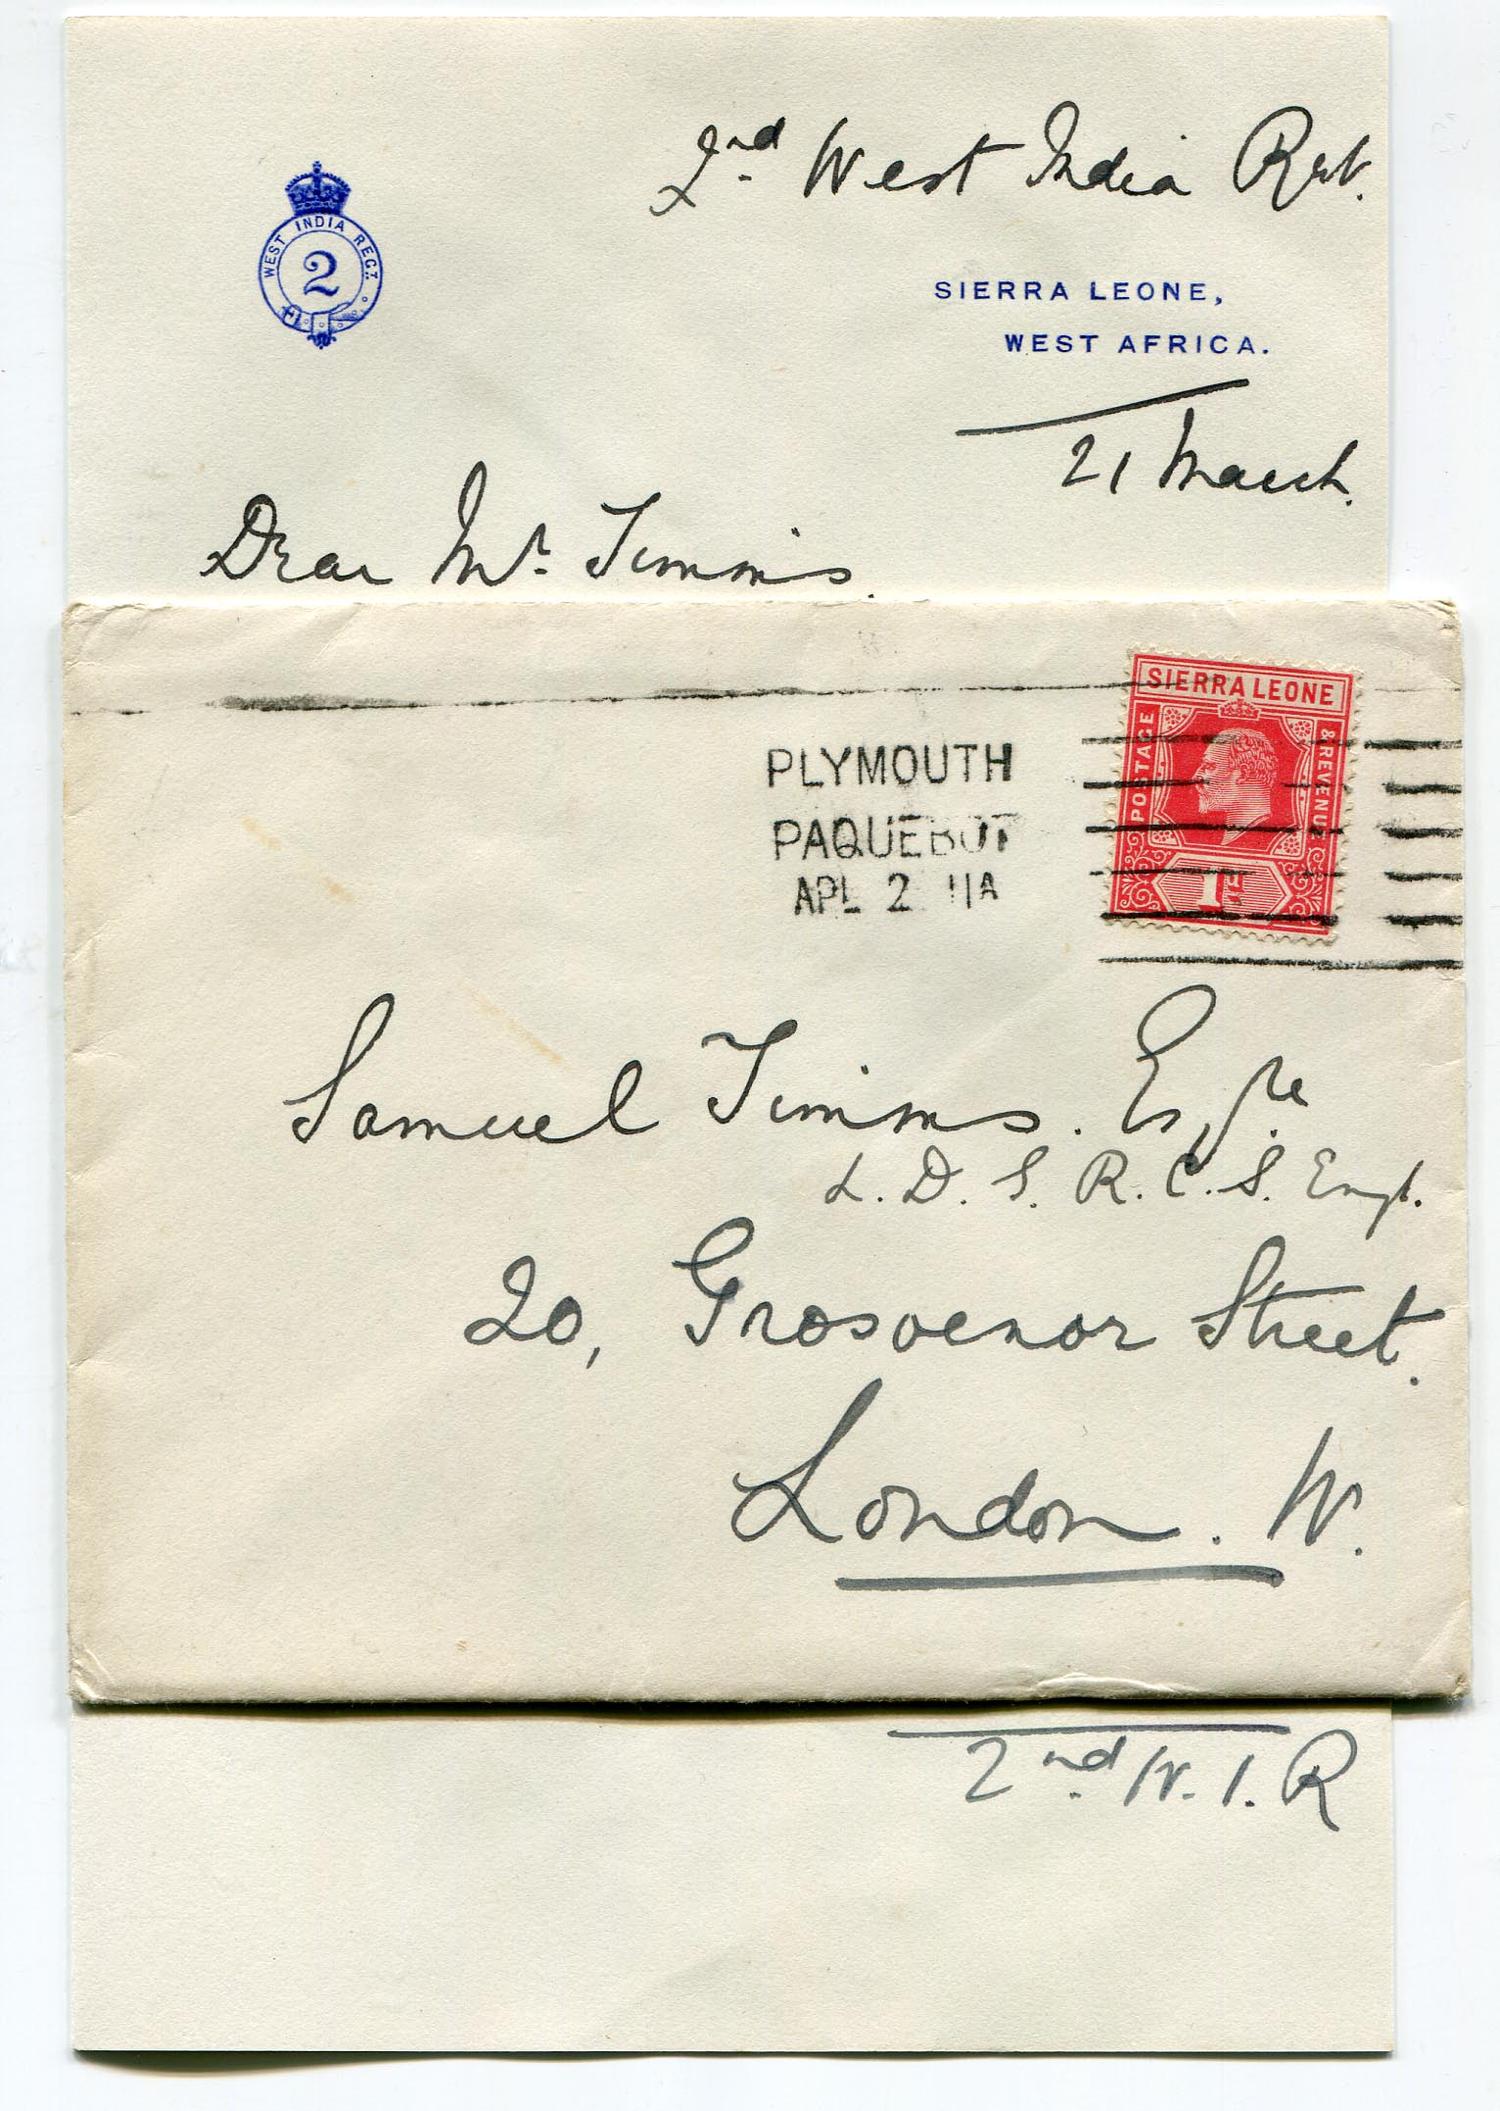 2nd West India Regt.
WEST INDIA REGT.
2
SIERRA LEONE,
WEST AFRICA.
21 March.
Dear Mr. Timms.
SIERRA LEONE
POSTAGE
& REVENUE
1d
PLYMOUTH
PAQUEBOT
APL 2 11A
Samuel Timms. Esqre
L. D. S. R. C. S. Engl.
20, Grosvenor Street.
London. W.
2nd W. I. R